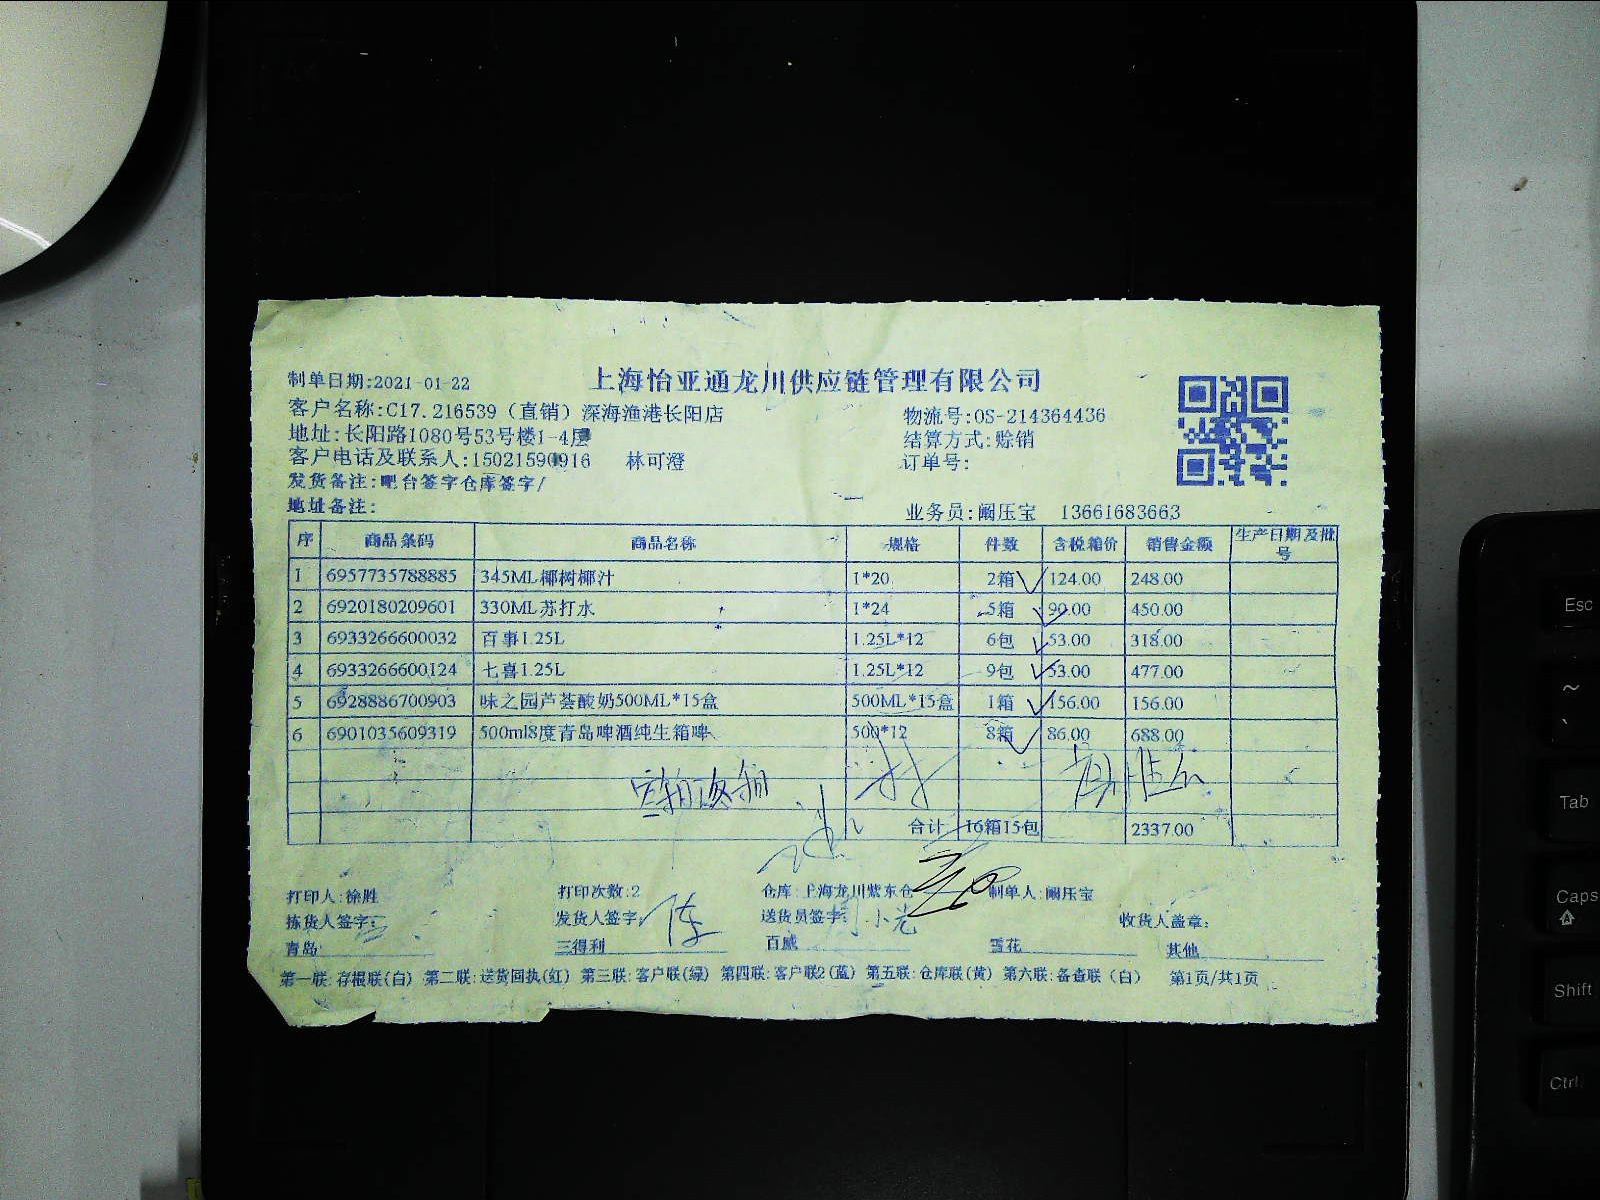 制单日期:2021-01-22
上海怡亚通龙川供应链管理有限公司
客户名称:C17.216539（直销）深海渔港长阳店
物流号:OS-214364436
地址:长阳路1080号53号楼1-4层
结算方式:赊销
客户电话及联系人:15021590916 林可澄
订单号:
发货备注:吧台签字仓库签字/
地址备注:
业务员:阚压宝 13661683663
序 商品条码 商品名称 规格 件数 含税箱价 销售金额 生产日期及批号
1 6957735788885 345ML椰树椰汁 1*20 2箱 124.00 248.00
2 6920180209601 330ML苏打水 1*24 5箱 90.00 450.00
3 6933266600032 百事1.25L 1.25L*12 6包 53.00 318.00
4 6933266600124 七喜1.25L 1.25L*12 9包 53.00 477.00
5 6928886700903 味之园芦荟酸奶500ML*15盒 500ML*15盒 1箱 156.00 156.00
6 6901035609319 500ml8度青岛啤酒纯生箱啤 500*12 8箱 86.00 688.00
合计 16箱15包 2337.00
打印人:徐胜 打印次数:2 仓库:上海龙川紫东仓 制单人:阚压宝
拣货人签字: 发货人签字: 陈 送货员签字: 收货人盖章:
青岛 三得利 百威 雪花 其他
第一联:存根联(白) 第二联:送货回执(红) 第三联:客户联(绿) 第四联:客户联2(蓝) 第五联:仓库联(黄) 第六联:备查联（白） 第1页/共1页
Esc
~
`
Tab
Caps
Shift
Ctrl